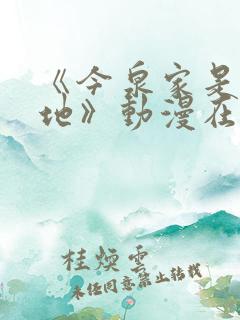 《今泉家是
地》動漫在
桂煐雲
未经同意禁止转载